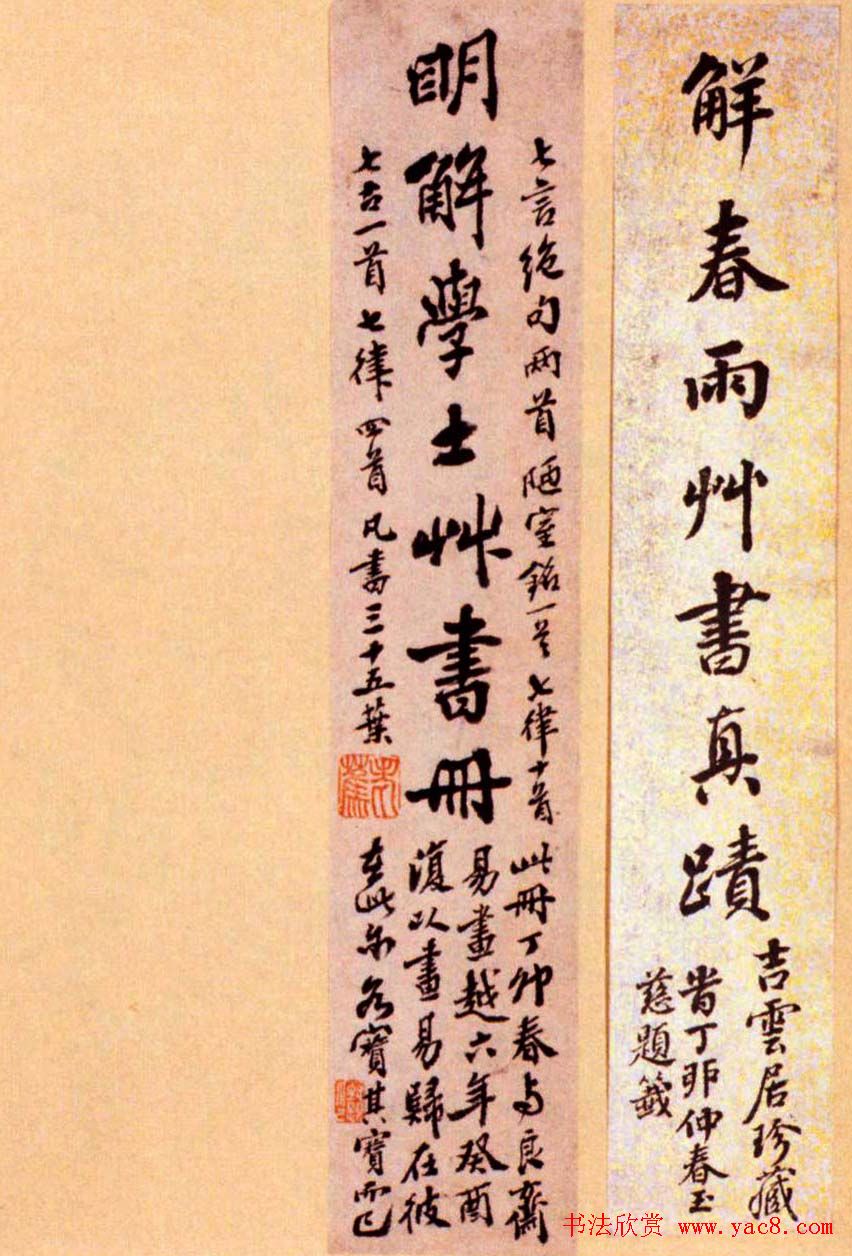 解春雨艸書真蹟
吉雲居珍藏
峕丁卯仲春玉
慈題籤
明解學士艸書冊
七言絶句兩首陋室銘一首七律十首
七古一首七律四首凡書三十五葉
此冊丁卯春与良齋
易畫越六年癸酉
復以畫易歸在彼
在此亦各寶其寶而已
书法欣赏 www.yac8.com